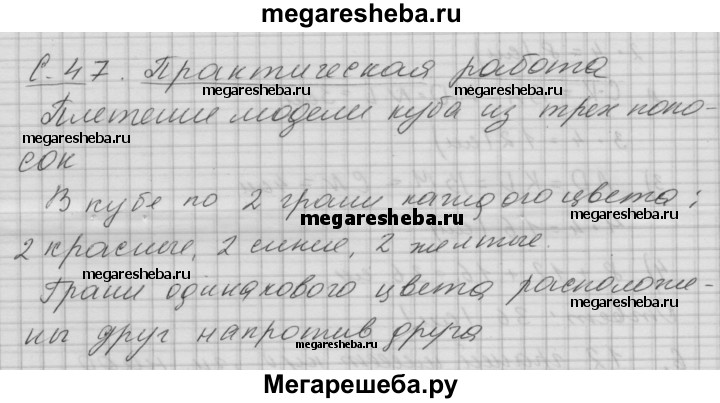 megaresheba.ru
С. 47. Практическая работа
megaresheba.ru megaresheba.ru
Плетение модели куба из трех поло-
megaresheba.ru megaresheba.ru
сок
В кубе по 2 грани каждого цвета:
megaresheba.ru
2 красные, 2 синие, 2 желтые.
megaresheba.ru megaresheba.ru
Грани одинакового цвета расположе-
ны друг напротив друга
megaresheba.ru
Мегарешеба.ру